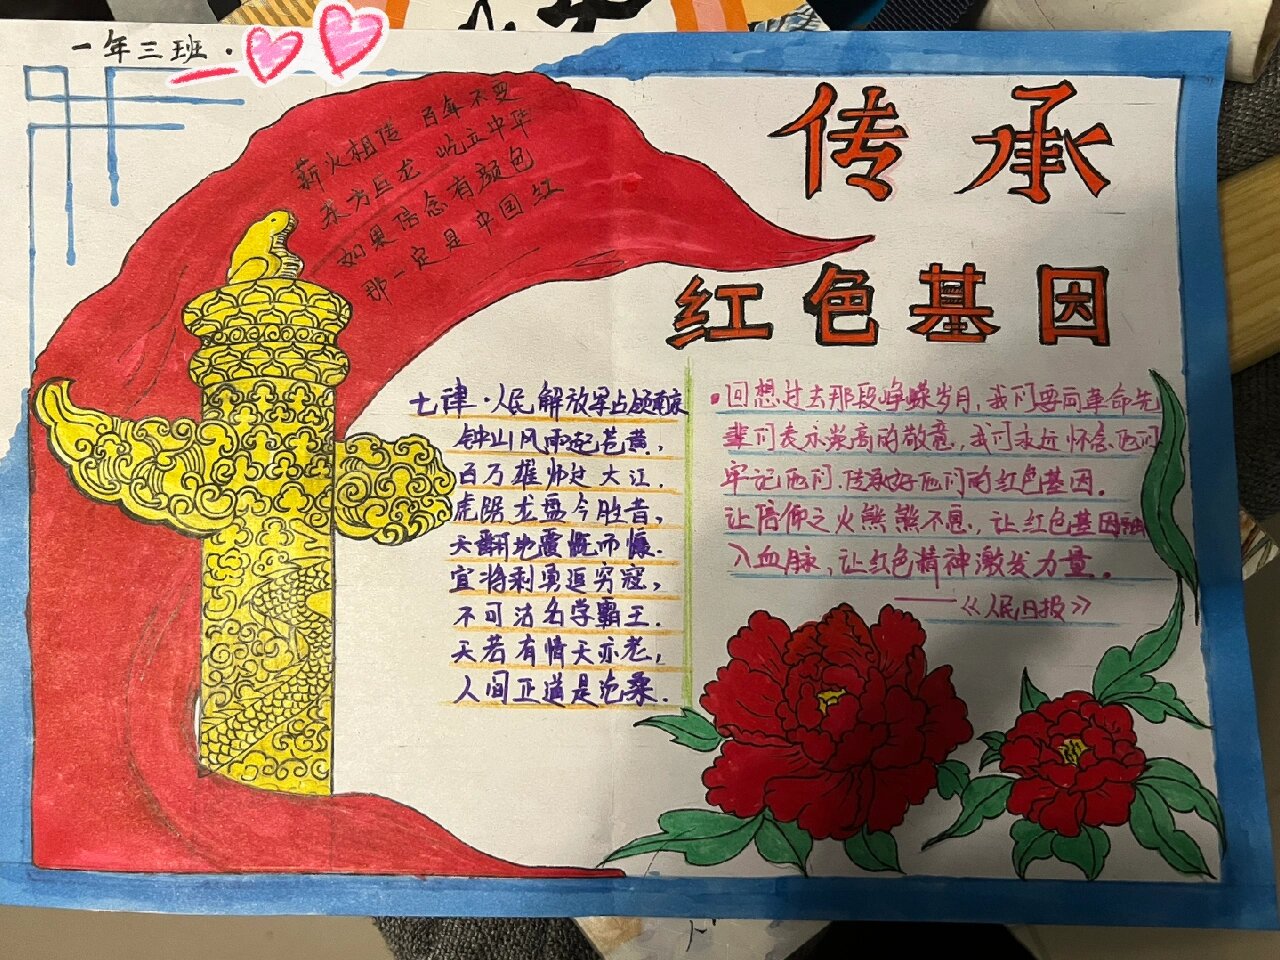 一年三班.
传承
红色基因
薪火相传 百年不变
东方巨龙 屹立中华
如果信念有颜色
那一定是中国红
七律·人民解放军占领南京
钟山风雨起苍黄,
百万雄师过大江.
虎踞龙盘今胜昔,
天翻地覆慨而慷.
宜将剩勇追穷寇,
不可沽名学霸王.
天若有情天亦老,
人间正道是沧桑.
·回想过去那段峥嵘岁月,我们要向革命先
辈们表示崇高的敬意,我们永远怀念他们
牢记他们,传承好他们的红色基因.
让信仰之火熊熊不息,让红色基因融
入血脉,让红色精神激发力量.
——《人民日报》